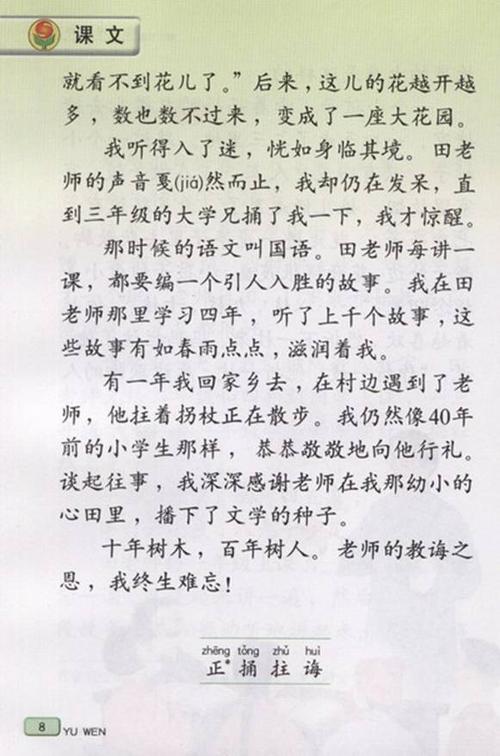 课文
就看不到花儿了。”后来，这儿的花越开越
多，数也数不过来，变成了一座大花园。
我听得入了迷，恍如身临其境。田老
师的声音戛(jiá)然而止，我却仍在发呆，直
到三年级的大学兄捅了我一下，我才惊醒。
那时候的语文叫国语。田老师每讲一
课，都要编一个引人入胜的故事。我在田
老师那里学习四年，听了上千个故事，这
些故事有如春雨点点，滋润着我。
有一年我回家乡去，在村边遇到了老
师，他拄着拐杖正在散步。我仍然像40年
前的小学生那样，恭恭敬敬地向他行礼。
谈起往事，我深深感谢老师在我那幼小的
心田里，播下了文学的种子。
十年树木，百年树人。老师的教诲之
恩，我终生难忘！
zhēng tǒng zhǔ huì
正* 捅 拄 诲
8 YU WEN